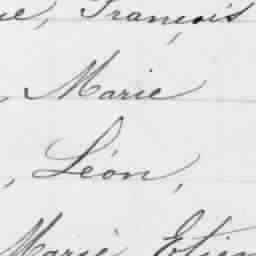 François
, Marie
, Léon,
Marie Etien